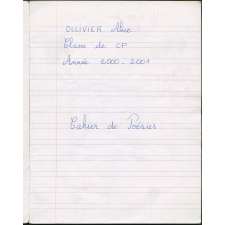 OLLIVIER Alice
Classe de CP
Année 2000-2001
Cahier de Poésies